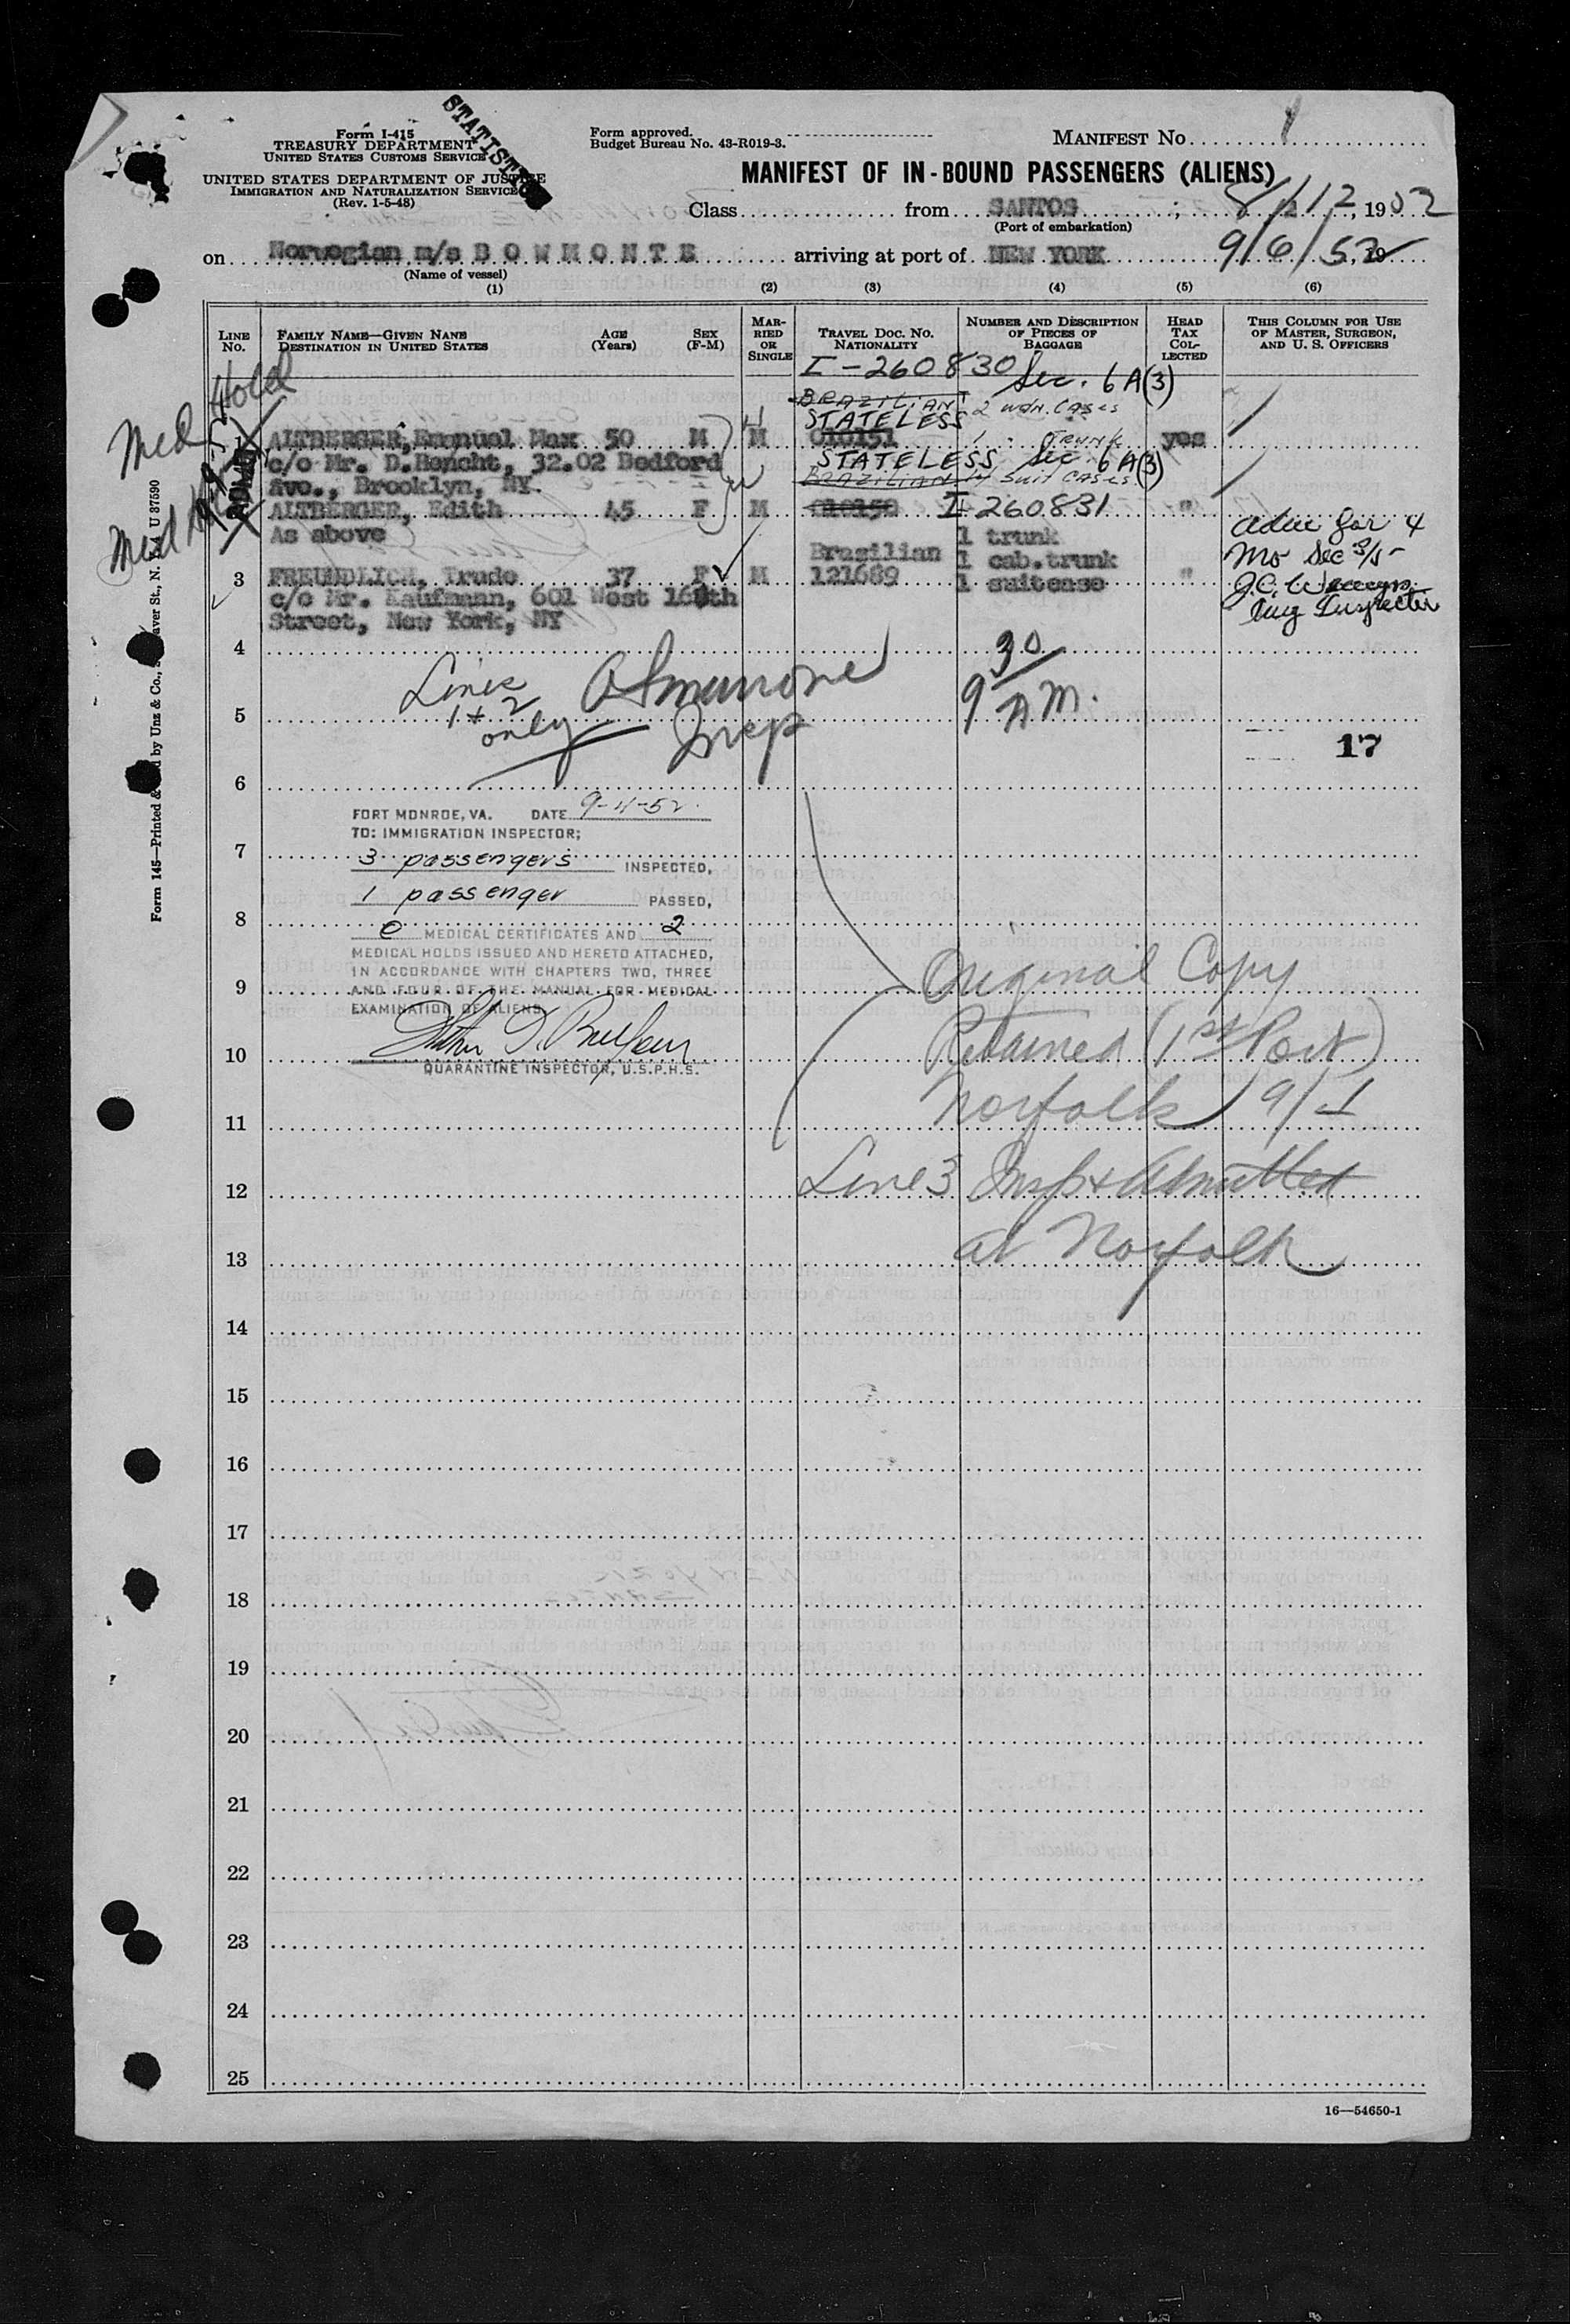 Form I-415
TREASURY DEPARTMENT
UNITED STATES CUSTOMS SERVICE
UNITED STATES DEPARTMENT OF JUSTICE
IMMIGRATION AND NATURALIZATION SERVICE
(Rev. 1-5-48)
Form approved.
Budget Bureau No. 43-R019-3.
MANIFEST NO. 1
MANIFEST OF IN-BOUND PASSENGERS (ALIENS)
Class from SANTOS ; 8/12, 1952
(Port of embarkation)
on Norwegian m/s BOWMONTE arriving at port of NEW YORK 9/6/52, 19
(Name of vessel)
(1) (2) (3) (4) (5) (6)
LINE NO.
FAMILY NAME—GIVEN NAME
DESTINATION IN UNITED STATES
AGE (Years)
SEX (F-M)
MARRIED OR SINGLE
TRAVEL DOC. NO. NATIONALITY
NUMBER AND DESCRIPTION OF PIECES OF BAGGAGE
HEAD TAX COLLECTED
THIS COLUMN FOR USE OF MASTER, SURGEON, AND U. S. OFFICERS
Med Hold
I-260830 Sec. 6A(3)
BRAZILIAN 2 wdn. cases
STATELESS
1 ALTBERGER, Emanuel Max 50 M M 010151 1 " TRUNK yes
c/o Mr. D.Hencht, 32.02 Bedford STATELESS Sec. 6A(3)
Ave., Brooklyn, NY. BRAZILIAN 4 suit cases
ALTBERGER, Edith 45 F M 010150 I-260831 "
As above
1 trunk
Brasilian 1 cab.trunk
3 FREUNDLICH, Trude 37 F M 121689 1 suitcase "
c/o Mr. Kaufmann, 601 West 164th
Street, New York, NY
Adm for 4
Mo Sec 3/5
Img Inspector
4
Lines
1 + 2
only
Insp
9 30/AM.
5
17
6
FORT MONROE, VA. DATE 9-4-52
TO: IMMIGRATION INSPECTOR;
7
3 passengers INSPECTED,
1 passenger PASSED,
8
0 MEDICAL CERTIFICATES AND 2
MEDICAL HOLDS ISSUED AND HERETO ATTACHED,
IN ACCORDANCE WITH CHAPTERS TWO, THREE
9 AND FOUR OF THE MANUAL FOR MEDICAL
EXAMINATION OF ALIENS.
QUARANTINE INSPECTOR, U.S.P.H.S.
Original Copy
10 Retained (1st Port)
11 Norfolk 9/4
12 Line 3 Insp + Admitted
13 at Norfolk
14
15
16
17
18
19
20
21
22
23
24
25
16—54650-1